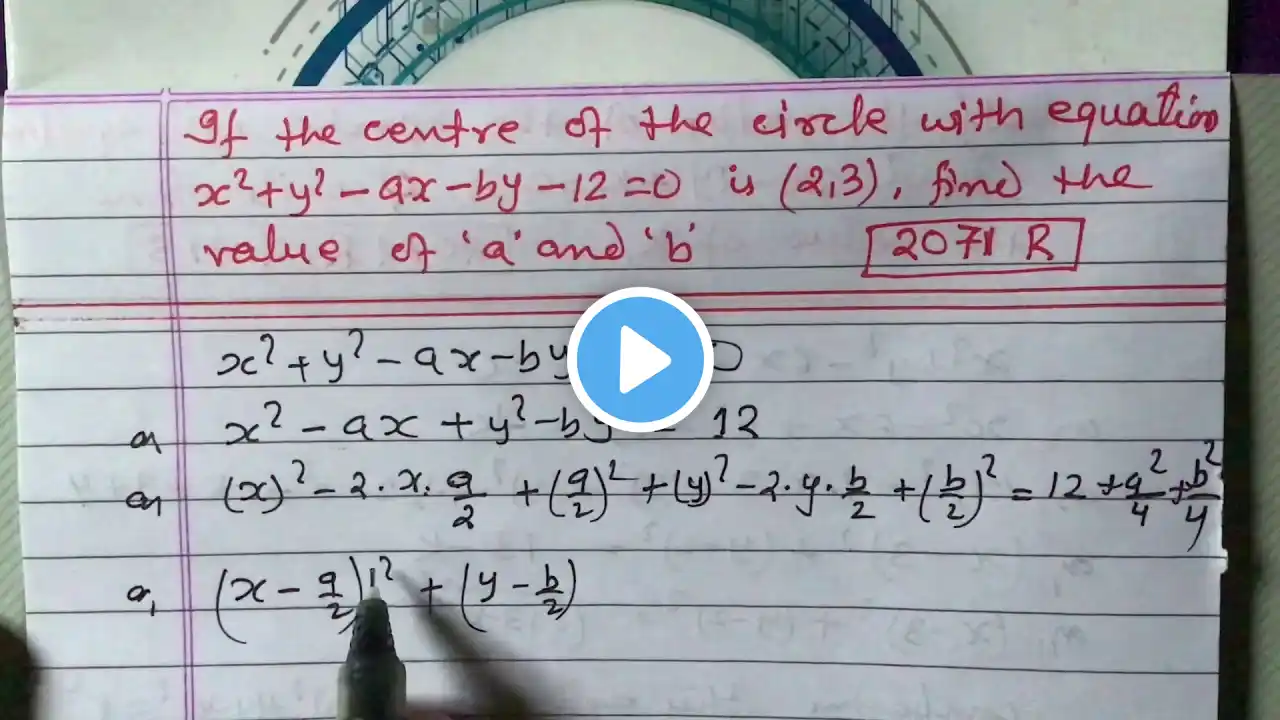 If the centre of the circle with equation
x²+y²-ax-by-12=0 is (2,3), find the
value of 'a' and 'b'
2071 R
x²+y²-ax-by 0
or x²-ax+y²-by = 12
or, (x)²-2·x·a/2+(a/2)²+(y)²-2·y·b/2+(b/2)²=12+a²/4+b²/4
or, (x-a/2)²+(y-b/2)